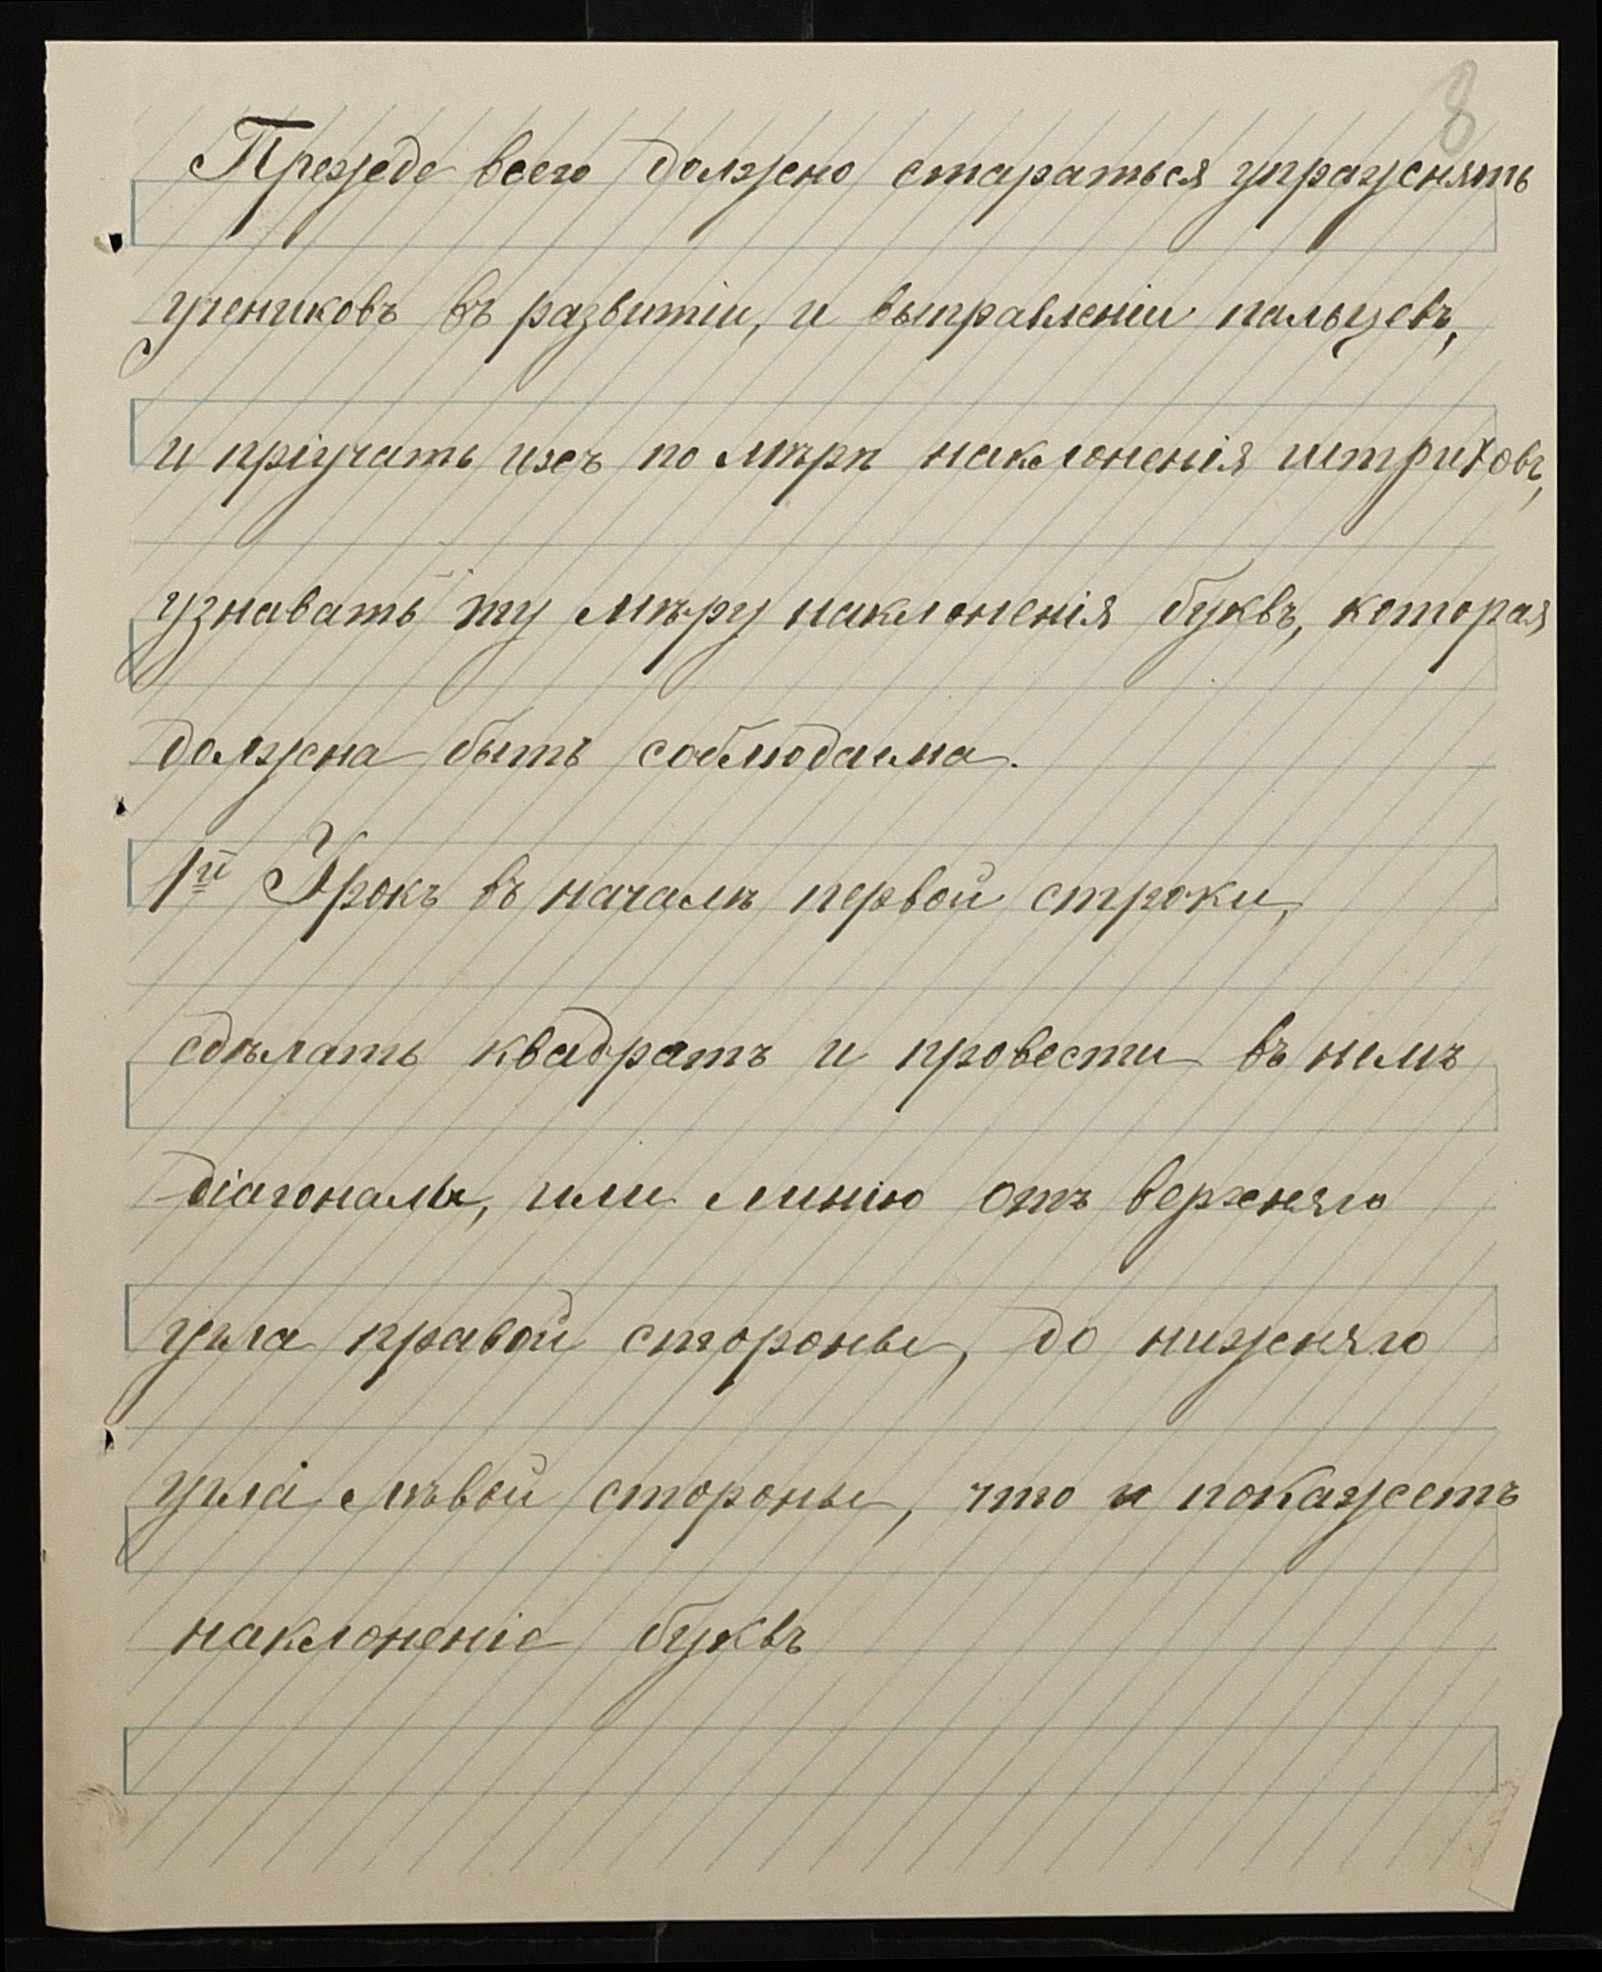 8
Прежде всего должно стараться упражнять
учениковъ въ развитіи, и выправленіи пальцевъ,
и пріучать ихъ по мѣрѣ наклоненія штриховъ,
узнавать ту мѣру наклоненія буквъ, которая
должна быть соблюдаема.
1й Урокъ въ началѣ первой строки,
сдѣлать квадратъ и провести въ немъ
діагональ, или линію отъ верхняго
угла правой стороны, до нижняго
угла лѣвой стороны, что и покажетъ
наклоненіе буквъ